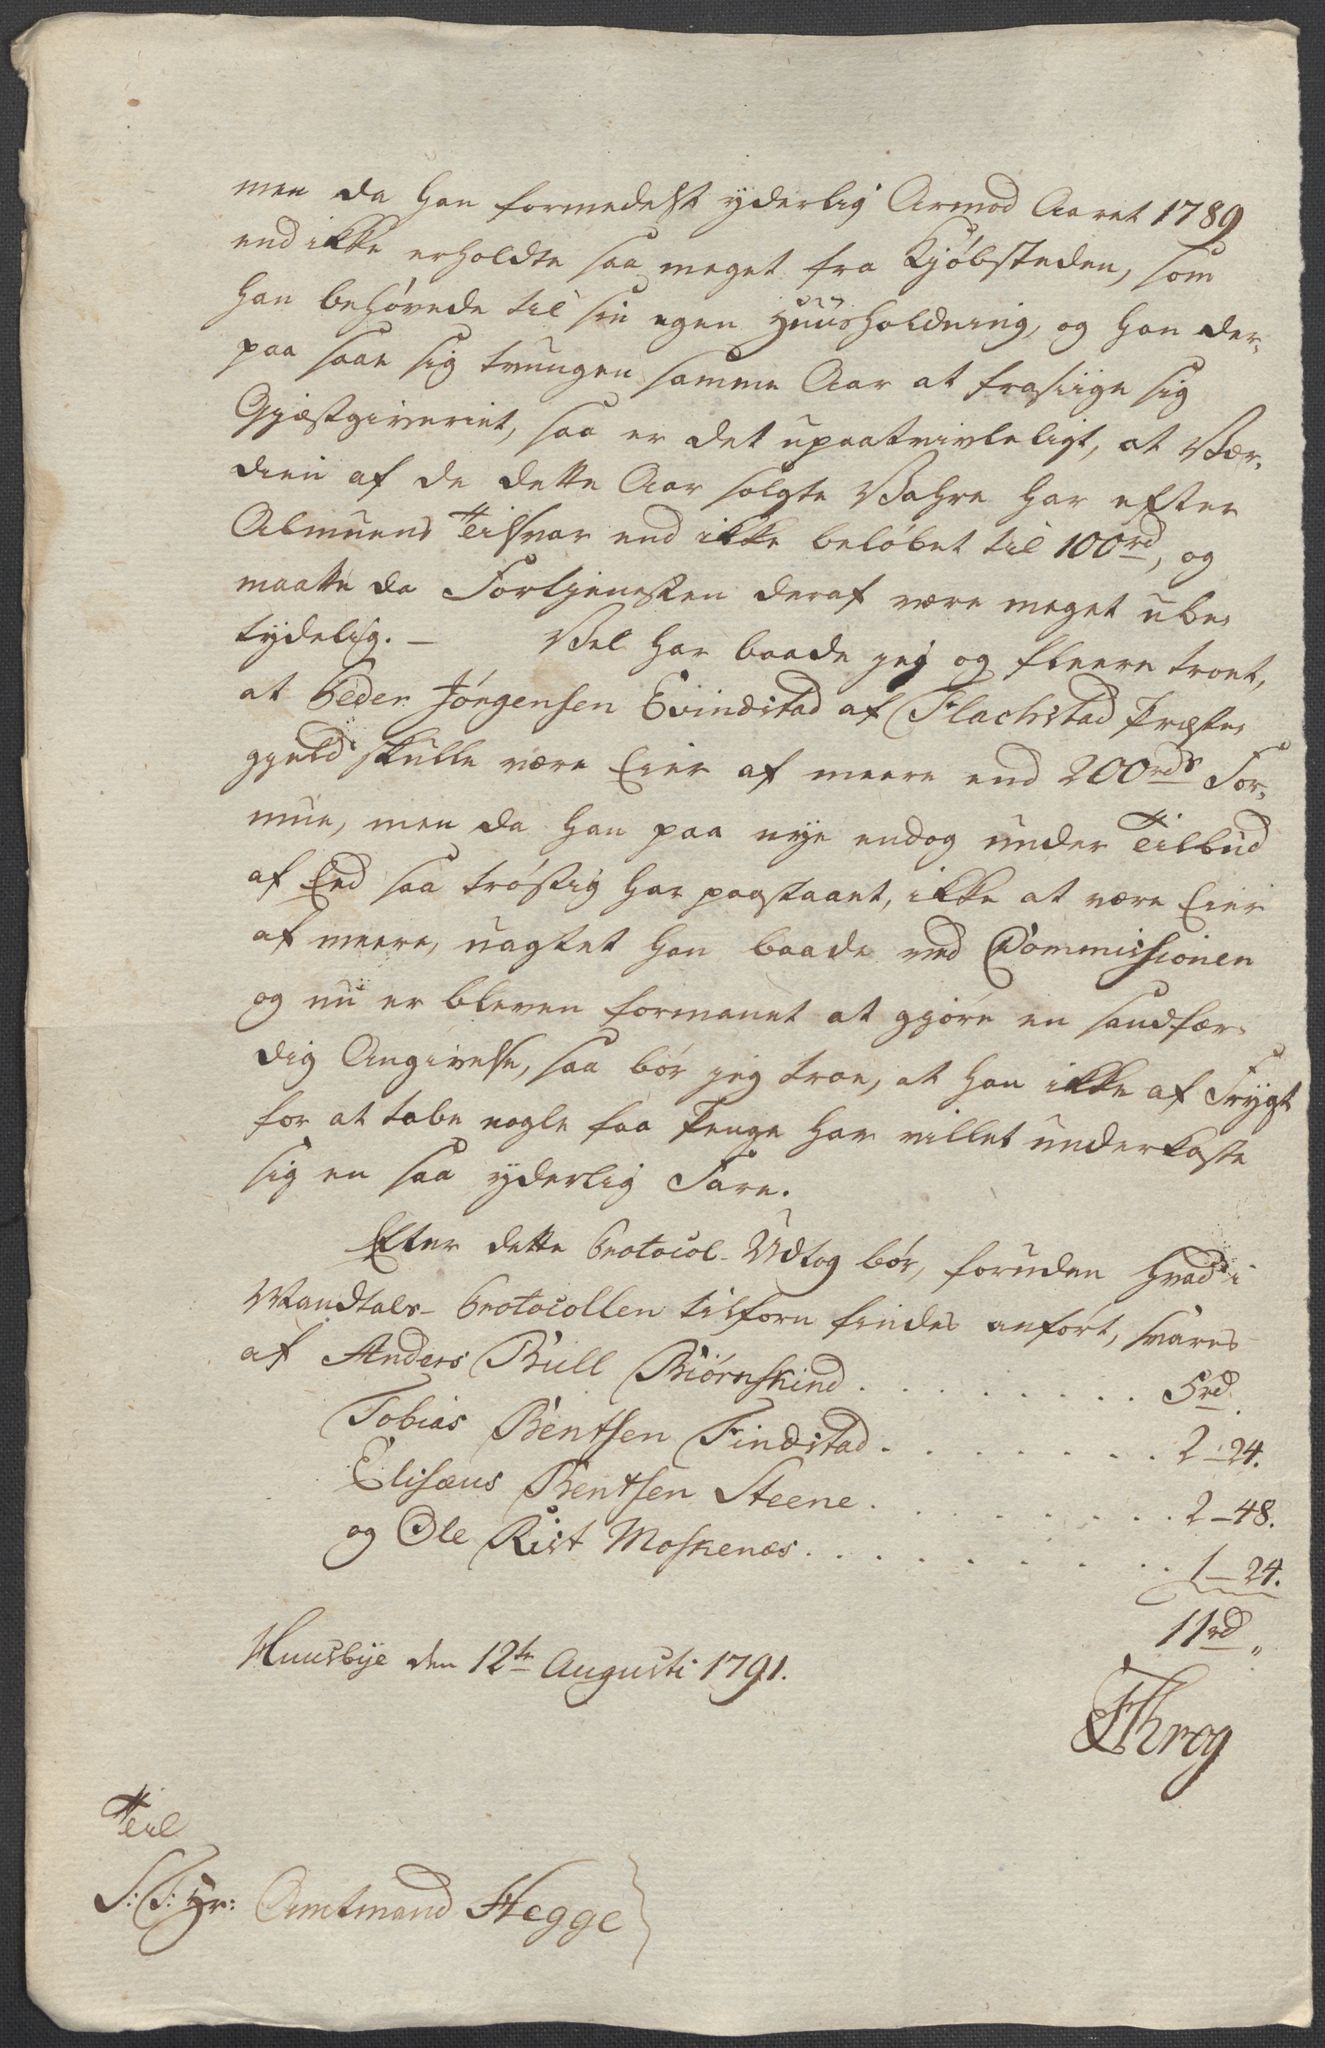 men da han formedelst yderlig Armod Aaret 1789
end ikke erholdte saa meget fra Kjøbsteden, som
han behøvede til sin egen Huusholdning, og han der-
paa saae sig tvungen samme Aar at frasiige sig
Gjæstgiveriet, saa er det upaatvivleligt, at Vær-
dien af de dette Aar solgte Vahre har efter
Almuens Tilsvar end ikke beløbet til 100rd, og
maatte da Fortjenesten deraf være meget ube-
tydelig. — Vel har baade jeg og fleere troet,
at Peder Jørgensen Evindstad af Flachstad Præste-
gjeld skulle være Eier af meere end 200rds For-
mue, men da han paa nye endog under Tilbud
af Eed saa trøstig har paastaaet, ikke at være Eier
af meere, uagtet han baade ved Commissionen
og nu er bleven formanet at gjøre en sandfær-
dig Angivelse, saa bør jeg troe, at han ikke af Frygt
for at tabe nogle faa Penge har villet underkaste
sig en saa yderlig Fare.
Efter dette Protocol-Udtog bør, foruden hvad i
Mandtals-Protocollen tilforn findes anført, svares
af Anders Bull Biørnskind . . . . . . . . 5rd.
Tobias Bentsen Findstad . . . . . . . . 2-24.
Elisæus Bentsen Steene . . . . . . . . 2-48.
og Ole Rist Moskenæs . . . . . . . . 1-24.
11rd „
Huusbye den 12te Augusti 1791.
FThrog
Til
S: T: Hr: Amtmand Hegge